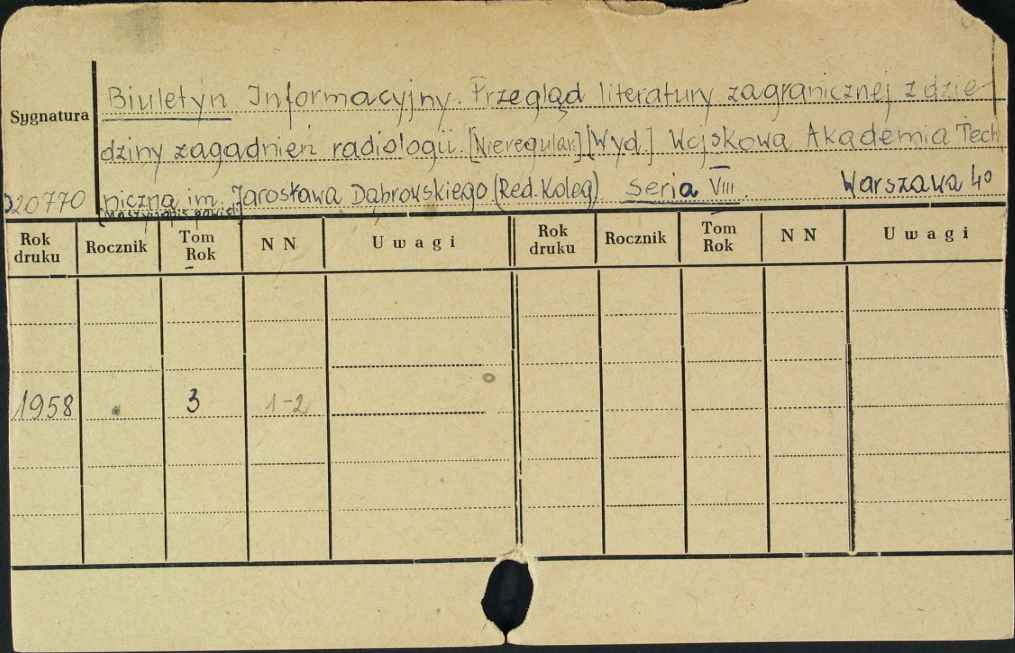 Sygnatura
Biuletyn Informacyjny. Przegląd literatury zagranicznej z dzie-
dziny zagadnień radiologii. [Nieregular.] [Wyd.] Wojskowa Akademia Tech
20770 niczna im. Jarosława Dąbrowskiego (Red. Koleg) Seria VIII. Warszawa 40
Rok druku Rocznik Tom Rok N N Uwagi Rok druku Rocznik Tom Rok N N Uwagi
1958 3 1-2